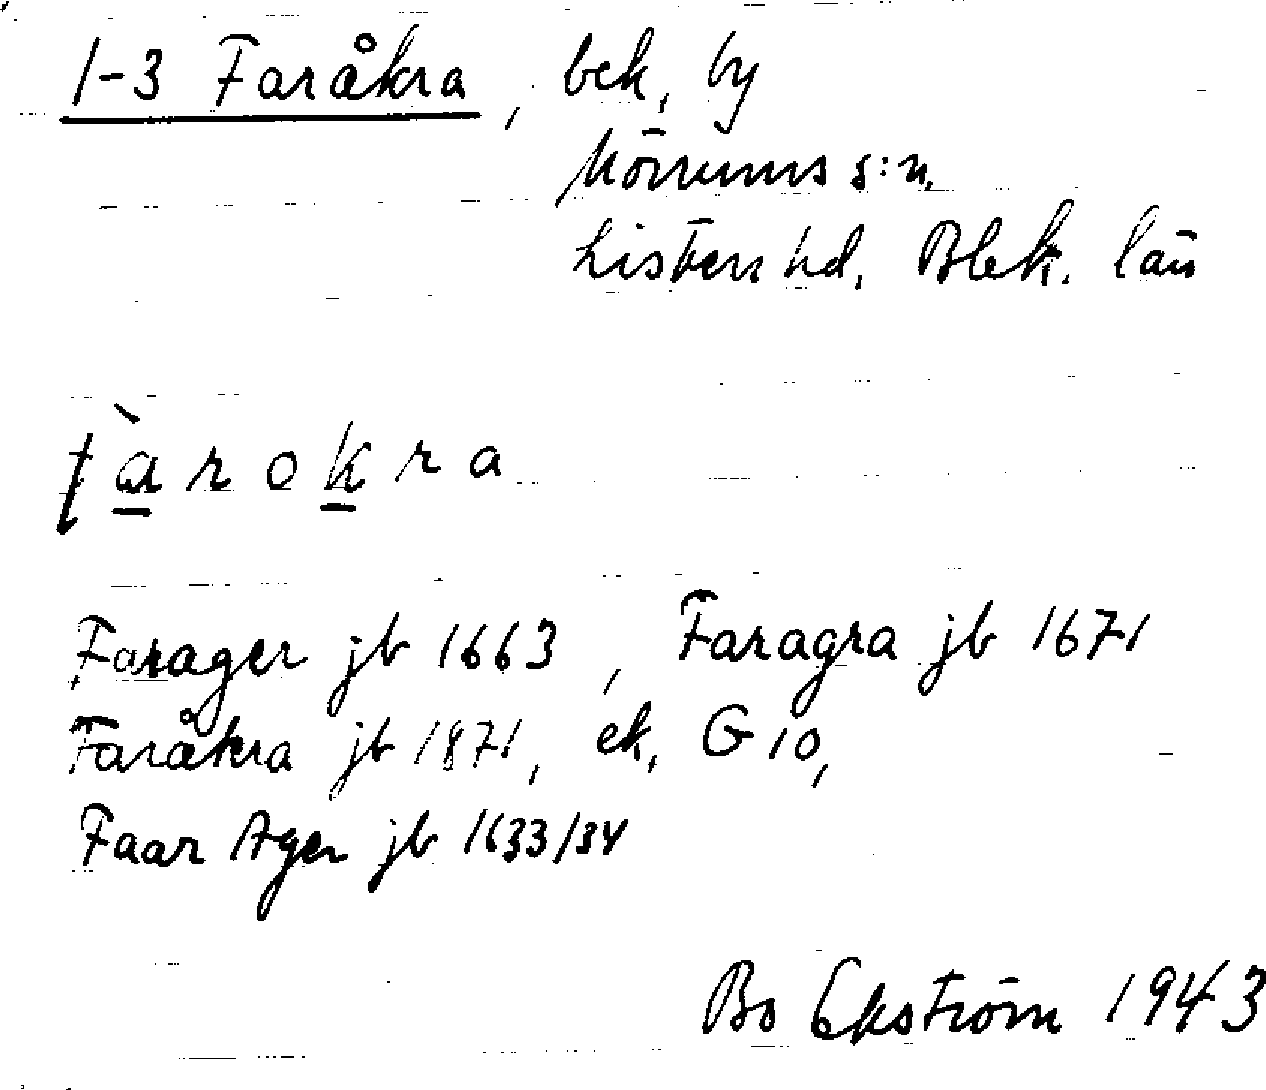 1-3 Faråkra, bek, by
Mörrums s:n.
Listers hd. Blek. län
fàrokra
Farager jb 1663, Faragra jb 1671
Faråkra jb 1871, ek, G 10,
Faar Ager jb 1633/34
Bo Ekström 1943